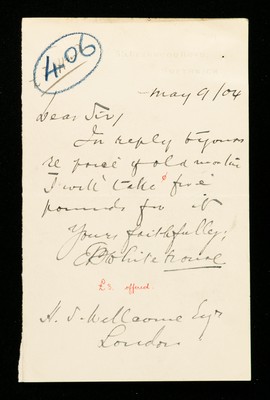 406
May 9/04
Dear Sir/
In reply to yours
re price of old mortar
I will take five
pounds for it
Yours faithfully,
Whitehouse
£3 offered
H. S. Wellcome Esqr
London